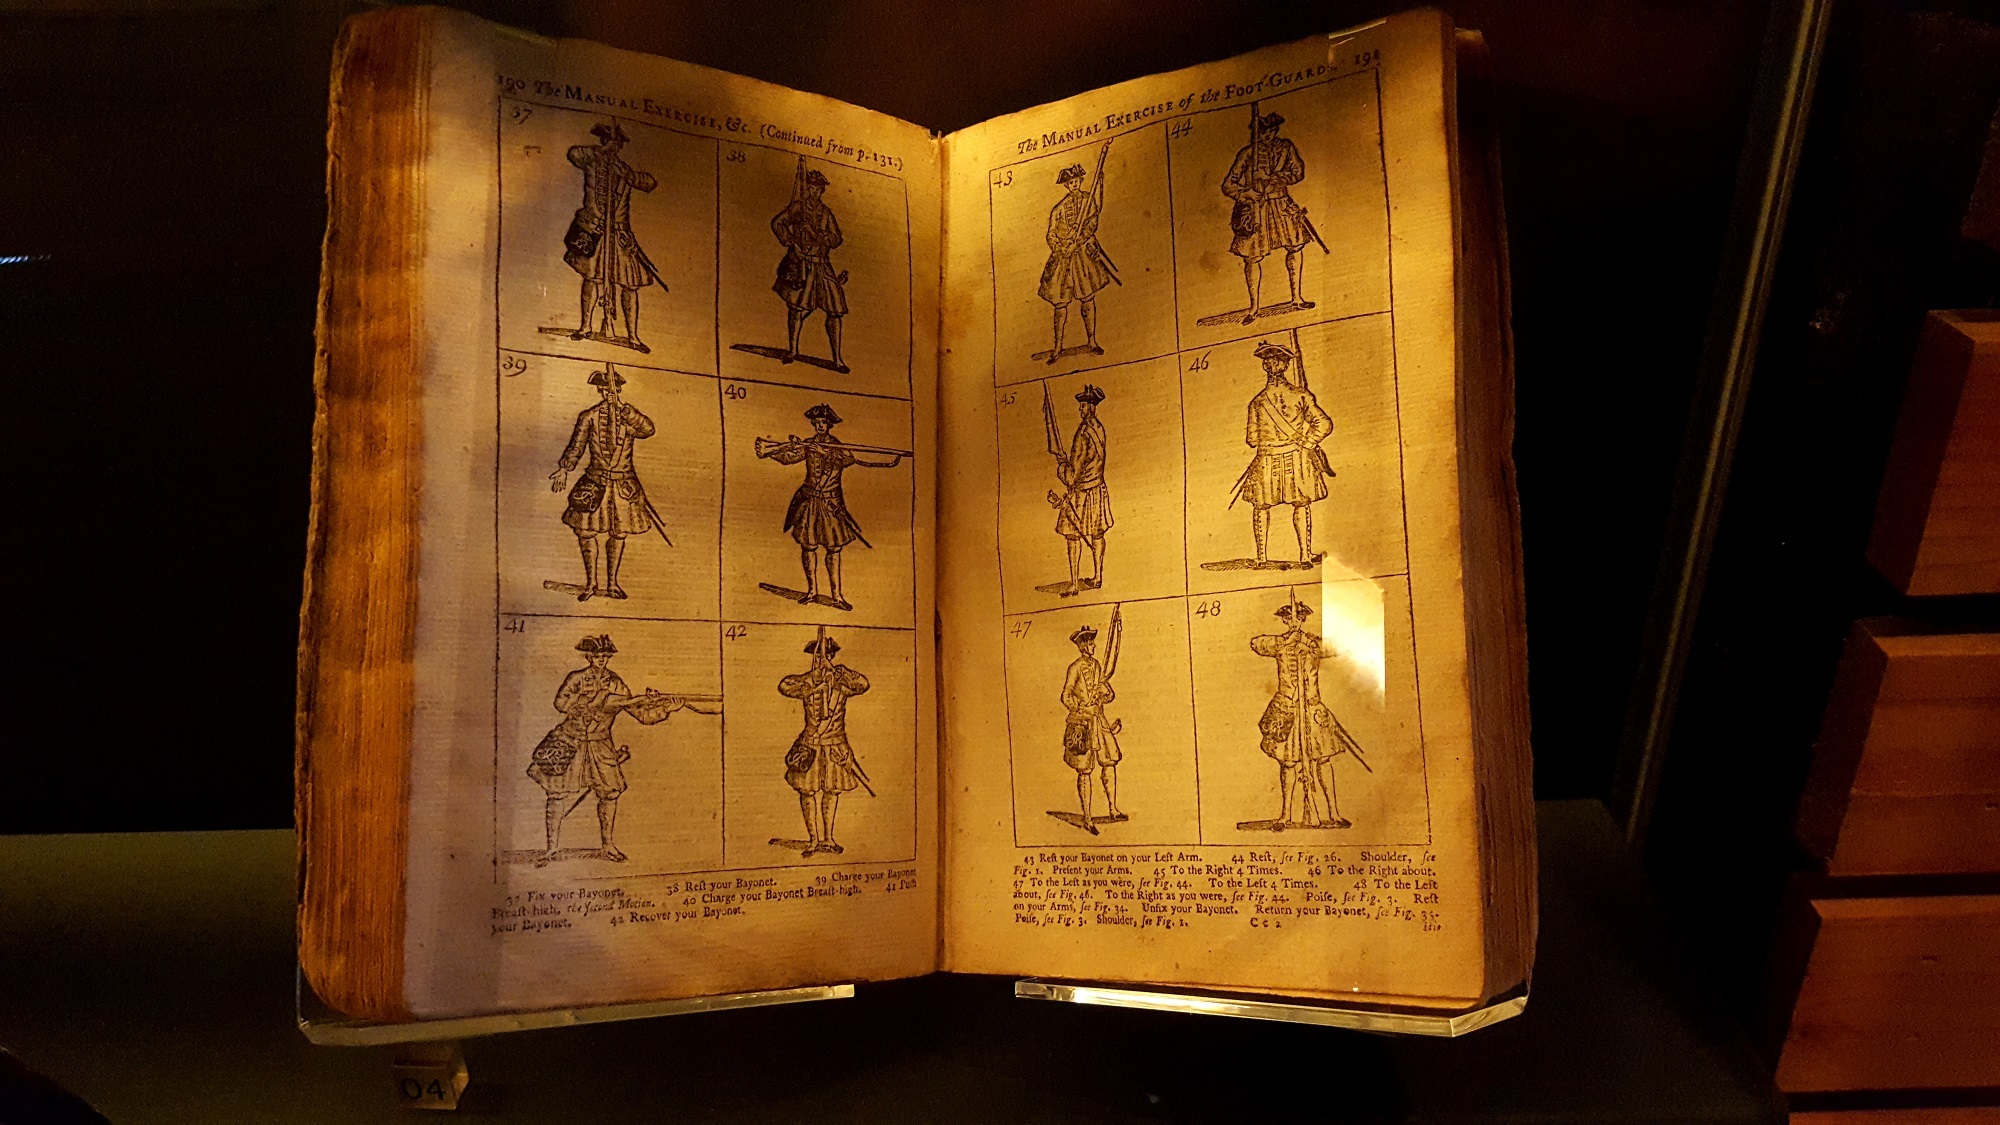 190 The MANUAL EXERCISE, &c. (Continued from p. 131.)
37
38
39
40
41
42
37 Fix your Bayonet. 38 Rest your Bayonet. 39 Charge your Bayonet
Breast-high, the second Motion. 40 Charge your Bayonet Breast-high. 41 Push
your Bayonet. 42 Recover your Bayonet.
The MANUAL EXERCISE of the FOOT-GUARDS. 191
43
44
45
46
47
48
43 Reſt your Bayonet on your Left Arm. 44 Reſt, ſee Fig. 26. Shoulder, ſee
Fig. 1. Preſent your Arms. 45 To the Right 4 Times. 46 To the Right about.
47 To the Left as you were, ſee Fig. 44. To the Left 4 Times. 48 To the Left
about, ſee Fig. 46. To the Right as you were, ſee Fig. 44. Poiſe, ſee Fig. 3. Reſt
on your Arms, ſee Fig. 34. Unfix your Bayonet. Return your Bayonet, ſee Fig. 35.
Poiſe, ſee Fig. 3. Shoulder, ſee Fig. 1. C c 2
04